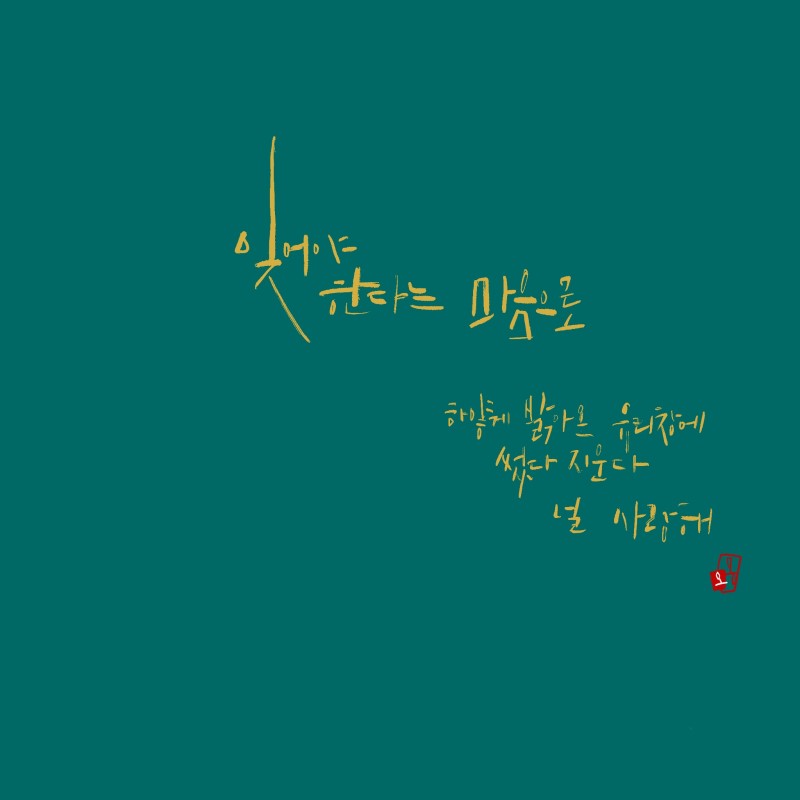 잊어야
한다는 마음으로
하얗게 밝아온 유리창에
썼다 지운다
널 사랑해
오